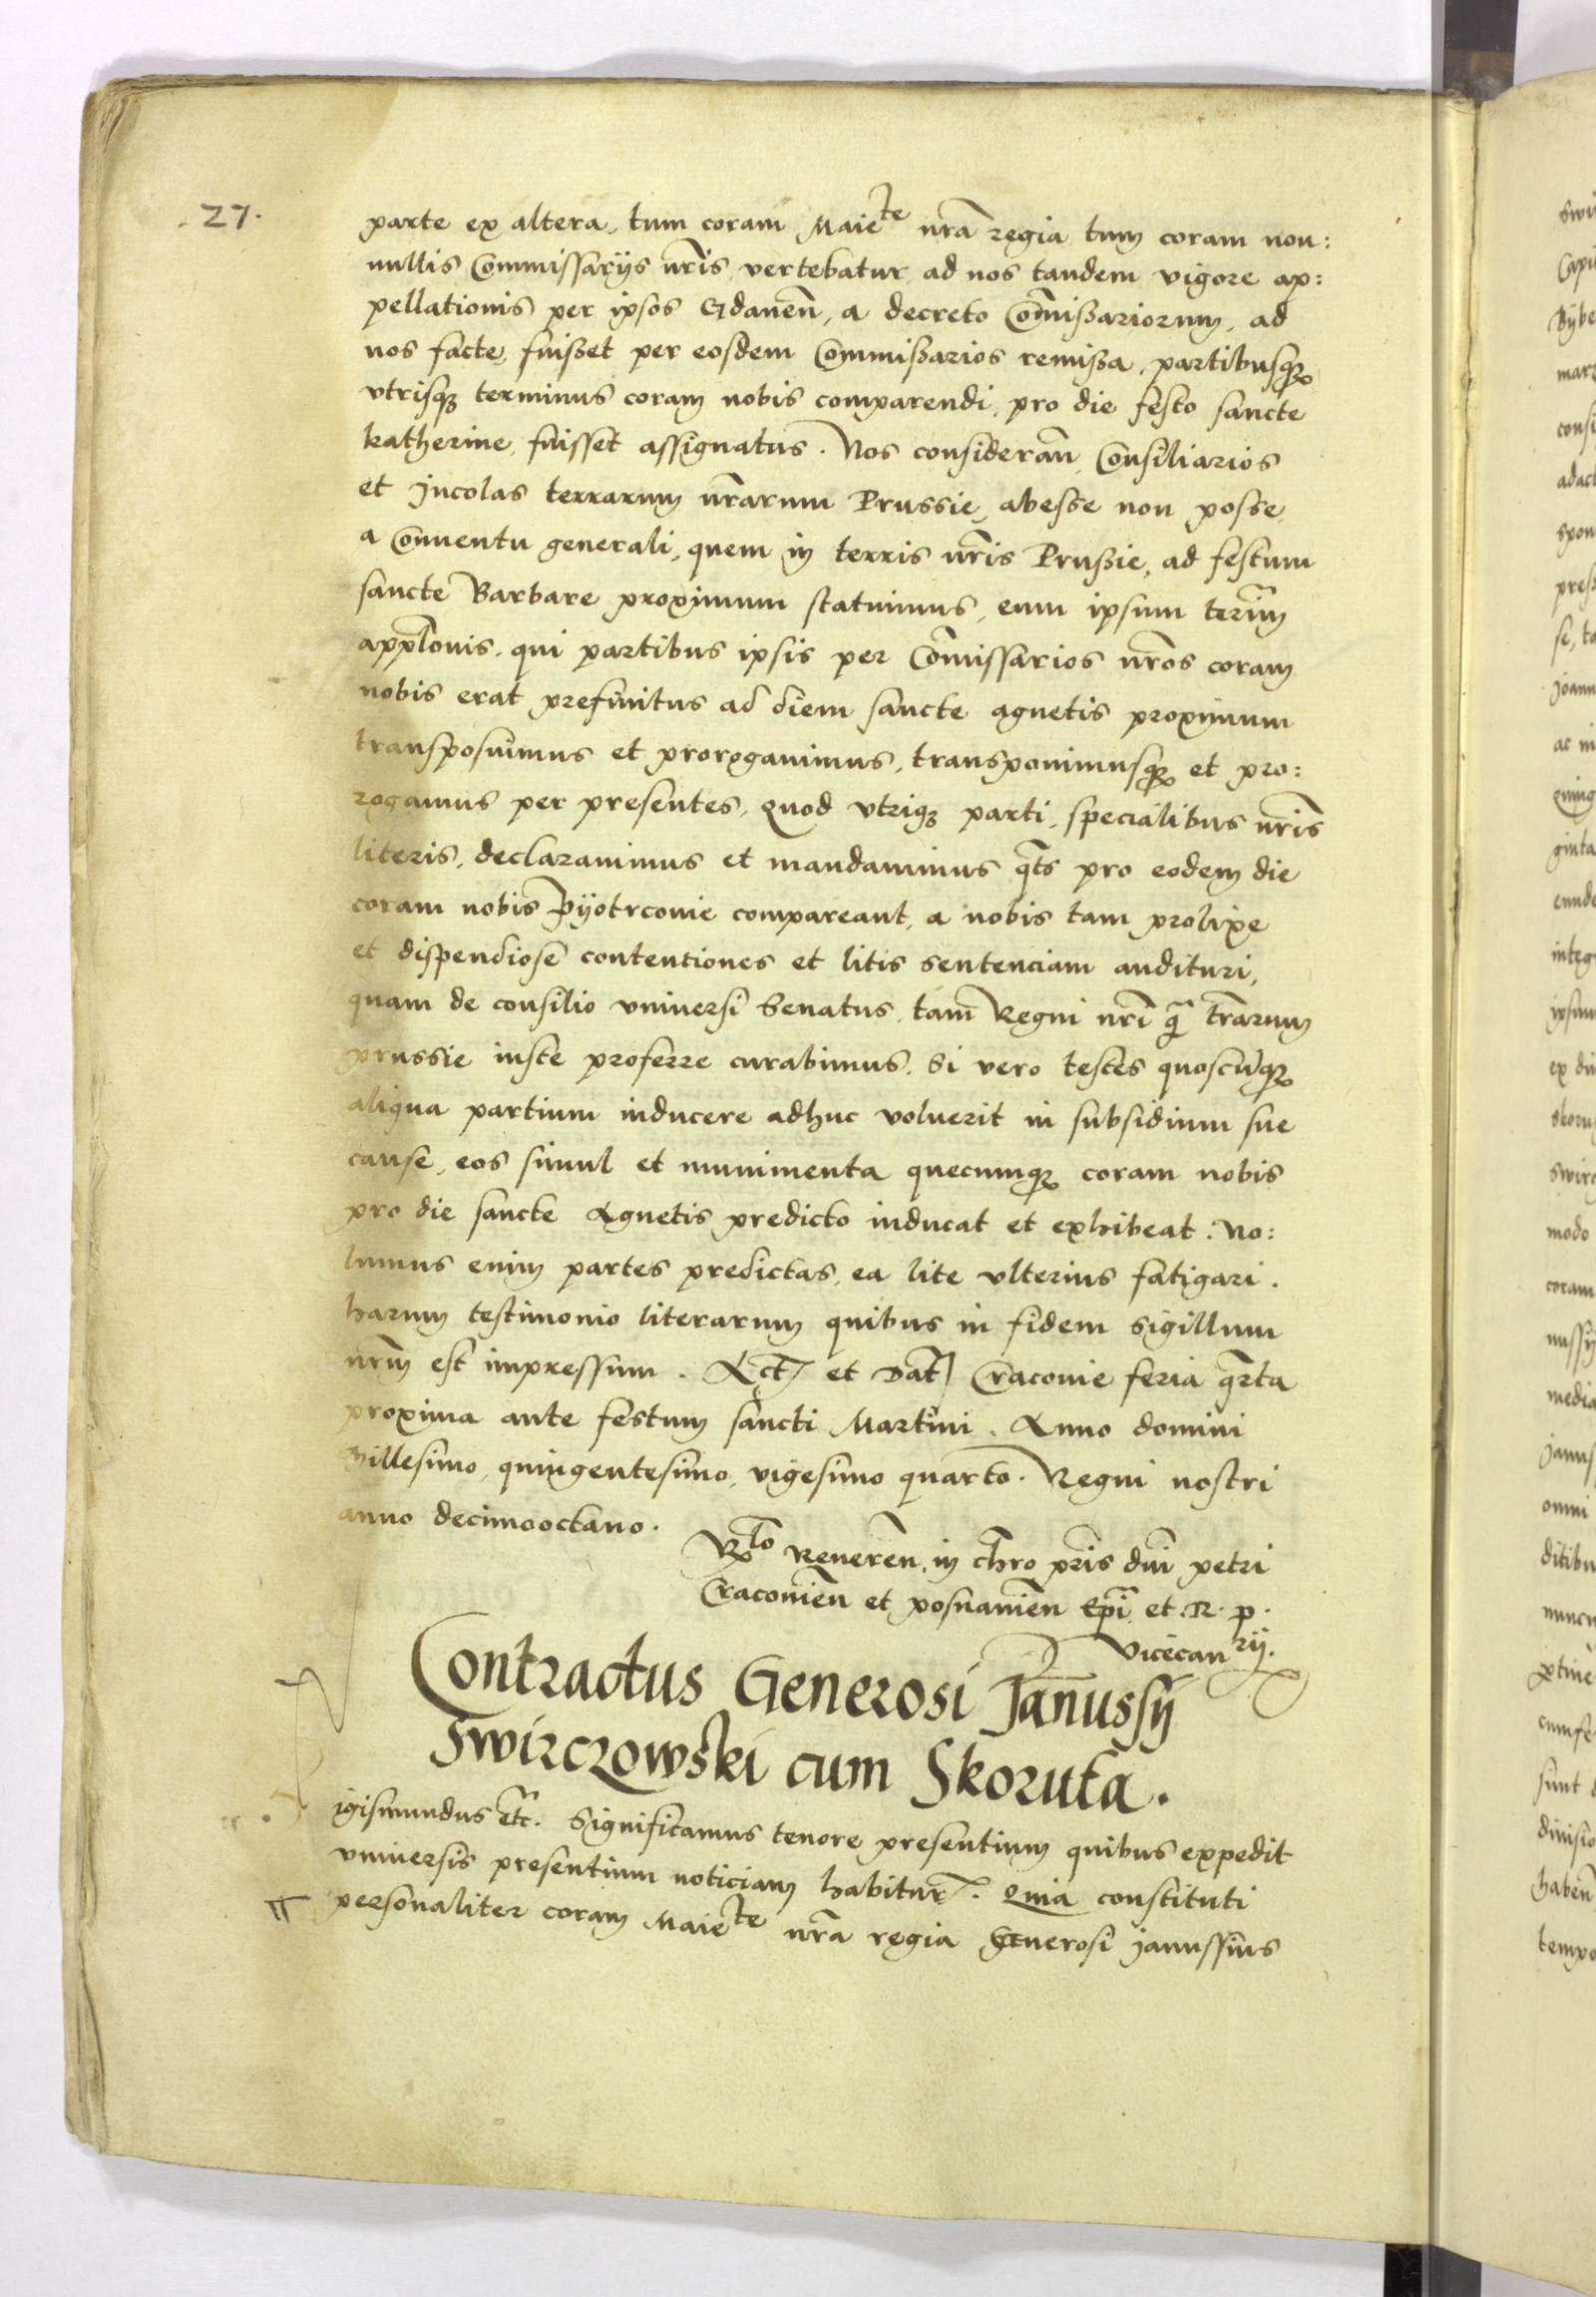 27.
parte ex altera, tum coram Maiete nra regia tum coram non:
nullis Commissarijs nris vertebatur ad nos tandem vigore ap:
pellationis per ipsos Gdanen, a decreto Commissariorum, ad
nos facte, fuisset per eosdem Commissarios remissa, partibusque
vtrisque terminus coram nobis comparendi, pro die festo sancte
katherine, fuisset assignatus. Nos consideran Consiliarios
et Incolas terrarum nrarum Prussie, abesse non posse
a Conuentu generali, quem in terris nris Prussie, ad festum
sancte Barbare proximum statuimus, eum ipsum terim
applonis, qui partibus ipsis per Comissarios nros coram
nobis erat prefinitus ad diem sancte agnetis proximum
transposuimus et prorogauimus, transponimusque et pro:
rogamus per presentes, quod vtrique parti, specialibus nris
literis, declarauimus et mandauimus qts pro eodem die
coram nobis Pyotrcouie compareant, a nobis tam prolixe
et dispendiose contentiones et litis sentenciam audituri,
quam de consilio vniuersi Senatus, tam Regni nri q trarum
prussie iuste proferre curabimus. Si vero testes quoscunque
aliqua partium inducere adhuc voluerit in subsidium sue
cause, eos simul et munimenta quecumque coram nobis
pro die sancte Agnetis predicto inducat et exhibeat. No:
lumus enim partes predictas, ea lite vlterius fatigari.
harum testimonio literarum quibus in fidem sigillum
nrm est impressum. Act et Dat Cracouie feria qrta
proxima ante festum sancti Martini. Anno domini
Millesimo, quingentesimo, vigesimo quarto. Regni nostri
anno decimooctauo.
Rlo Reueren, in chro pris dni petri
Cracouien et posnanien Epi et R. p.
vicecanrij.
Contractus Generosi Janussij
Swirczowski cum Skoruta.
igismundus etc. Significamus tenore presentium quibus expedit
vniuersis presentium noticiam habitur. Quia constituti
personaliter coram Maiete nra regia Generosi Janussius